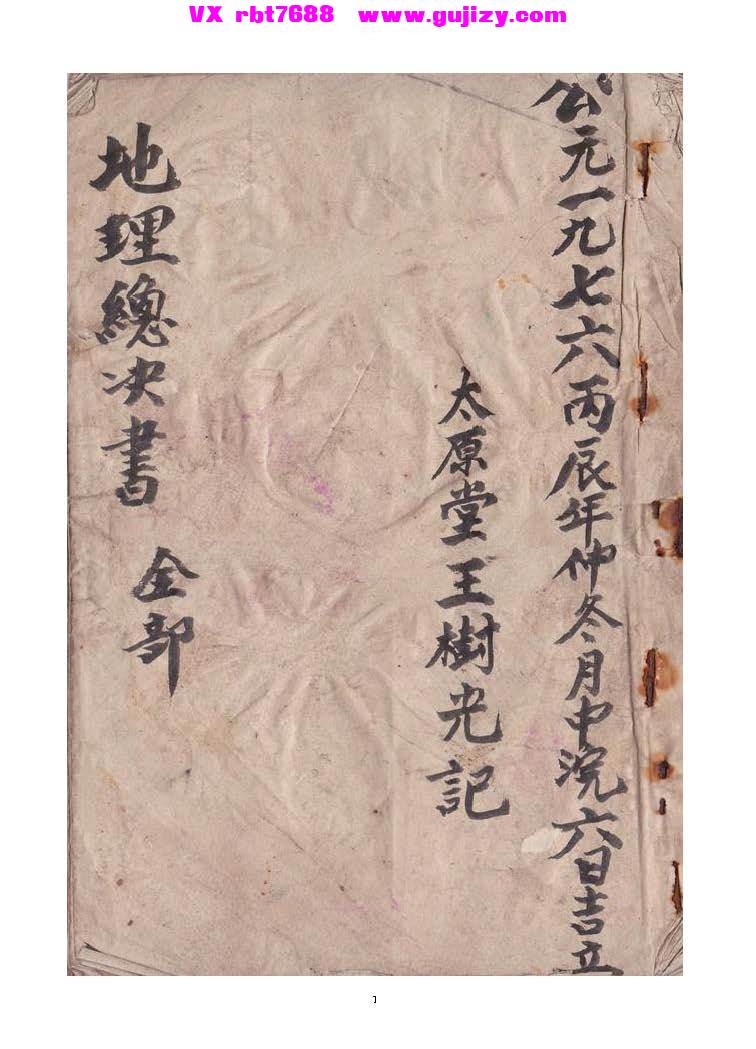 VX rbt7688 www.gujizy.com
公元一九七六丙辰年仲冬月中浣六日吉立
太原堂王樹光記
地理總决書 全部
1